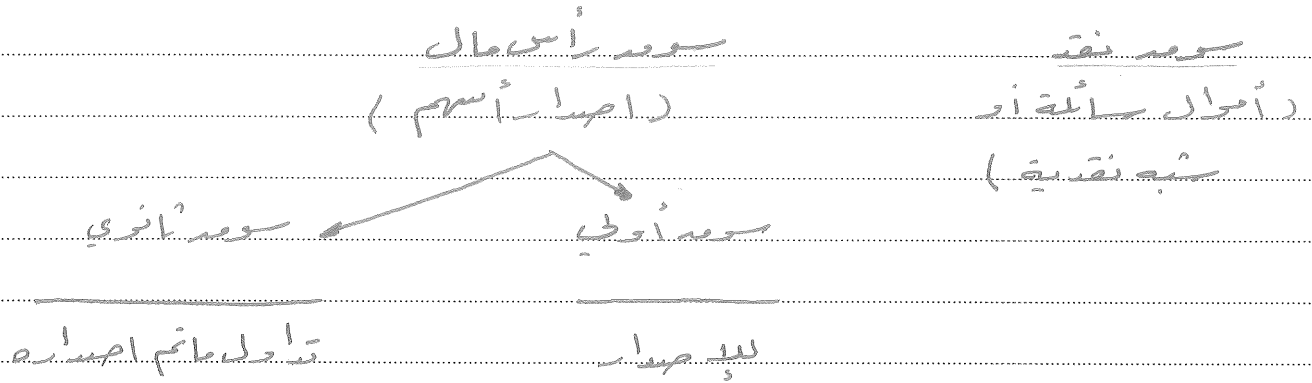 سوق نقد
(أموال سائلة أو
شبه نقدية)
سوق رأس مال
(اصدار أسهم)
سوق أولي
للإصدار
سوق ثانوي
تداول ما تم اصداره